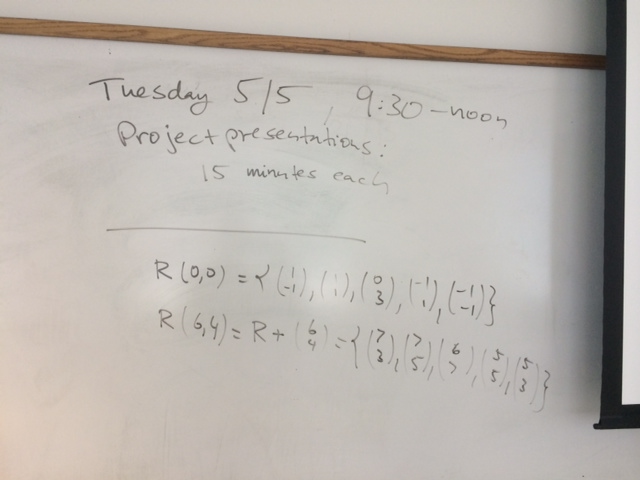 Tuesday 5/5, 9:30-noon
Project presentations:
15 minutes each
R(0,0) = {(1 -1), (1 1), (0 3), (-1 1), (-1 -1)}
R(6,4) = R + (6 4) = {(7 3), (7 5), (6 7), (5 5), (5 3)}